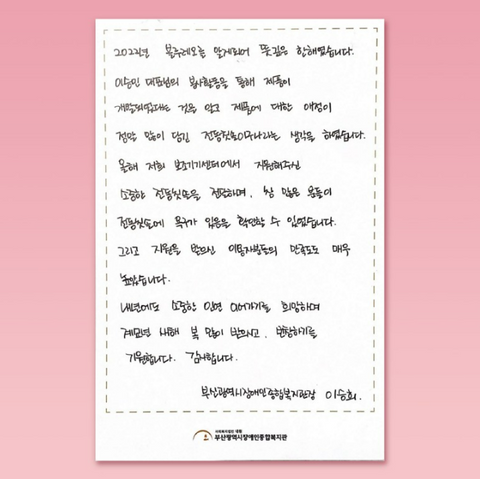 2022년 블루레오를 알게되어 뜻깊은 한해였습니다.
이승민 대표님의 봉사활동을 통해 제품이
개발되었다는 것을 알고 제품에 대한 애정이
정말 많이 담긴 전동칫솔이구나라는 생각을 하였습니다.
올해 저희 보조기기센터에서 지원해주신
소중한 전동칫솔을 전달하며, 참 많은 분들이
전동칫솔에 욕구가 있음을 확인할 수 있었습니다.
그리고 지원을 받으신 이용자분들의 만족도도 매우
높았습니다.
내년에도 소중한 인연 이어가기를 희망하며
계묘년 새해 복 많이 받으시고, 번창하기를
기원합니다. 감사합니다.
부산광역시장애인종합복지관장 이승희.
사회복지법인
부산광역시장애인종합복지관